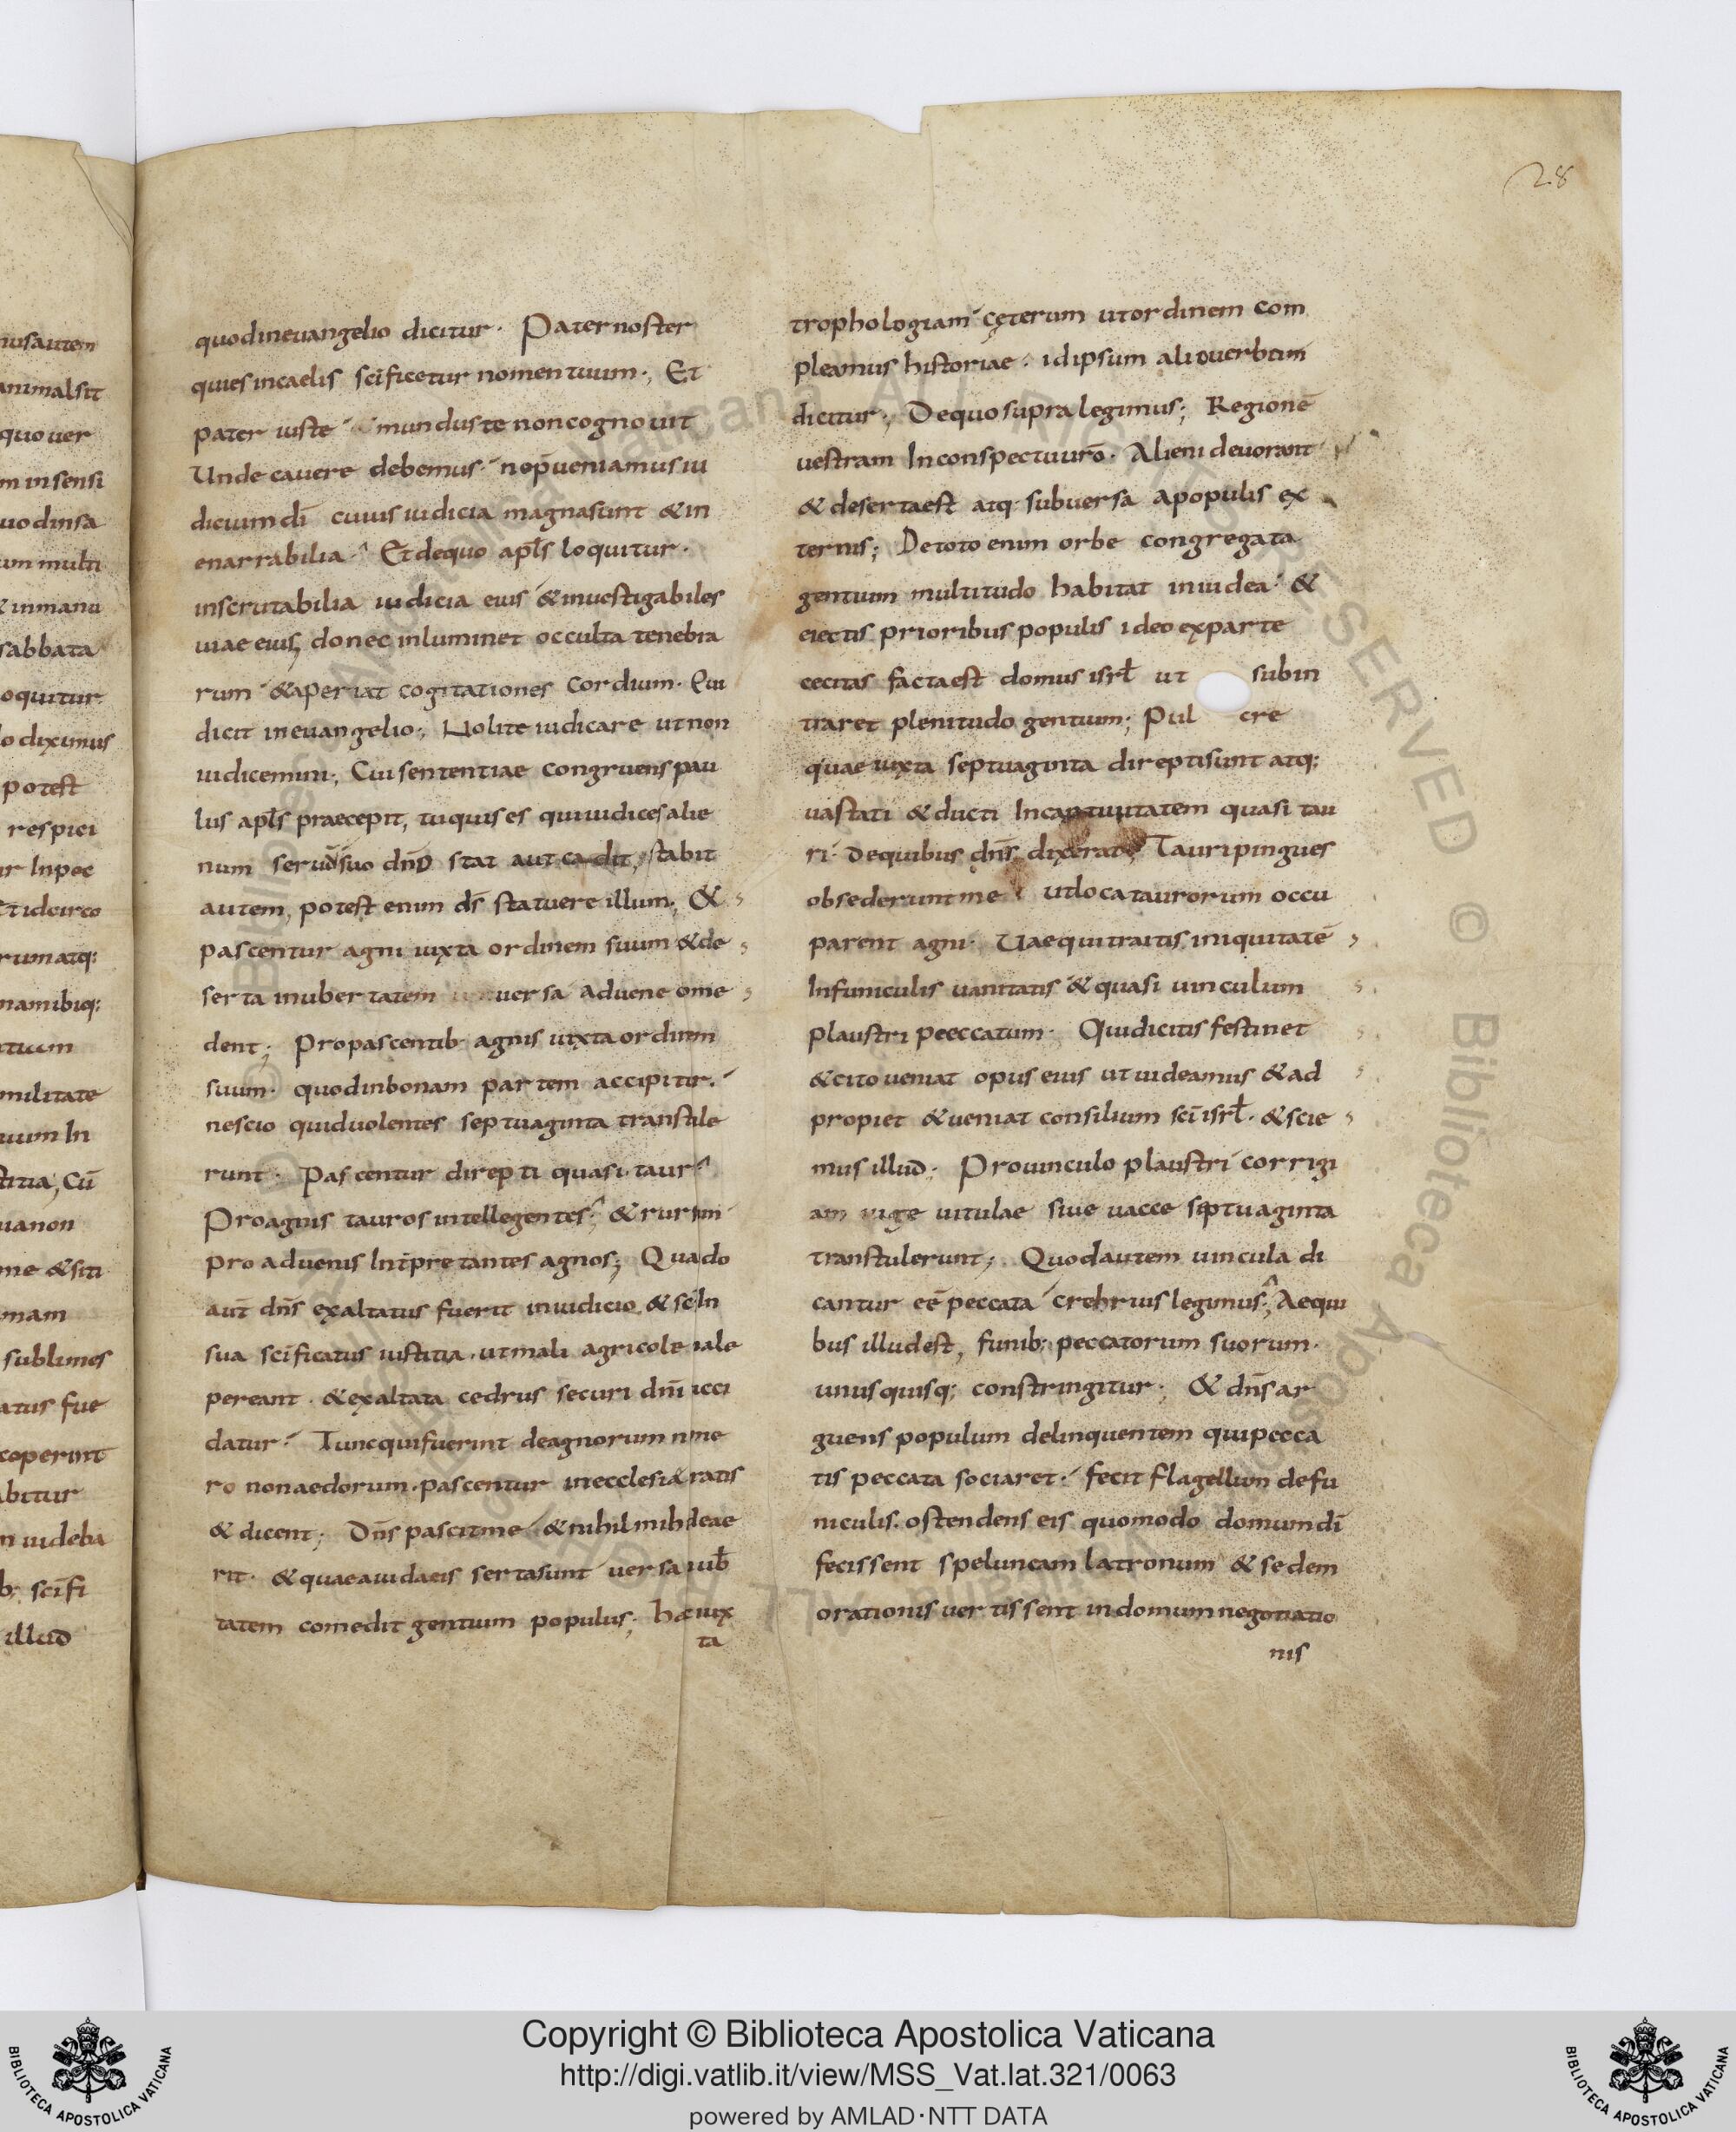 28
nusautem
animalsit
quouer
m insensi
uodinsa
um multi
& inmanu
sabbata
oquitur
lo diximus
potest
respici
ur Inpec
Et idcirco
rumatq:
namibiq:
militate
uum In
stitia, Cū
uanon
me & siti
mam
sublimes
atus fue
ceperint
abitur
n uideba
b; scīfi
illud
quodineuangelio dicitur· Paternoster
quiesincaelis scīficetur nomentuum·, Et
pater iuste mundus te noncognouit
Unde cauere debemus· nep̄ueniamusiu
dicium dī cuius iudicia magnasunt & in
enarrabilia· Et dequo apl̄s loquitur·
inscrutabilia iudicia eius & inuestigabiles
uiae eius, donec inluminet occulta tenebra
rum & aperiat cogitationes cordium· Qui
dicit ineuangelio·, Nolite iudicare utnon
iudicemini·, Cui sententiae congruens pau
lus apl̄s praecepit, tuquis es quiiudices alie
num seruūsuo dnō stat aut cadit, stabit
autem, potest enim ds̄ statuere illum·, &
pascentur agni iuxta ordinem suum & de
serta inubertatem uersa aduene ome
dent; Propascentib· agnis iuxta ordinem
suum· quodinbonam partem accipitur·
nescio quiduolentes septuaginta transtule
runt· Pascentur direpti quasi tauri
Proagnis tauros intellegentes; & rursum
pro aduenis Int̄pretantes agnos; Quado
aut̄ dn̄s exaltatus fuerit iniudicio & sc̄ In
sua scīficatus iustitia· utmali agricole iale
pereant· & exaltata cedrus securi dn̄i icci
datur· Tuncquifuerint deagnorum nme
ro nonaedorum· pascentur inecclesia ratis
& dicent; Dn̄s pascitme & nihil mihi deae
rit· & quaeauidaeis sertasunt uersa iub̄
tatem comedit gentium populus; hæc iux
ta
trophologiam cęterum utordinem com
pleamus historiae· idipsum alioverbum
dicitur·, Dequosupralegimus; Regionē
uestram Inconspectuurō· Alieni deuorant
& desertaest atq· subuersa apopulis ex
ternis; Detoto enim orbe congregata
gentium multitudo habitat iniudea· &
eiectis prioribus populis ideo exparte
cecitas factaest domus isrl̄ ut subin
traret plenitudo gentium; Pul cre
quae iuxta septuaginta direptisunt atq:
uastati & ducti Incaptiuitatem quasi tau
ri· dequibus dn̄s dixerat· Tauri pingues
obsederuntme utloca taurorum occu
parent agni· Uaequitraitis iniquitatē
Infuniculis uanitatis & quasi uinculum
plaustri peeccatum· Quidicitis festinet
& cito ueniat opus eius utuideamus & ad
propiet & ueniat consilium scī isrl̄· & scie
mus illud· Prouinculo plaustri corrigi
am iuge uitulae siue uacce septuaginta
transtulerunt; Quodautem uincula di
cantur eē peccata crebrius legimus; Aequi
bus illudest, funib: peccatorum suorum·
unusquisq; constringitur·, & dn̄s ar
guens populum delinquentem quipecca
tis peccata sociaret· fecit flagellum defu
niculis· ostendens eis quomodo domumdī
fecissent speluncam latronum & sedem
orationis uertissent indomumnegotiatio
nis
BIBLIOTECA APOSTOLICA VATICANA
Copyright © Biblioteca Apostolica Vaticana
http://digi.vatlib.it/view/MSS_Vat.lat.321/0063
powered by AMLAD·NTT DATA
BIBLIOTECA APOSTOLICA VATICANA